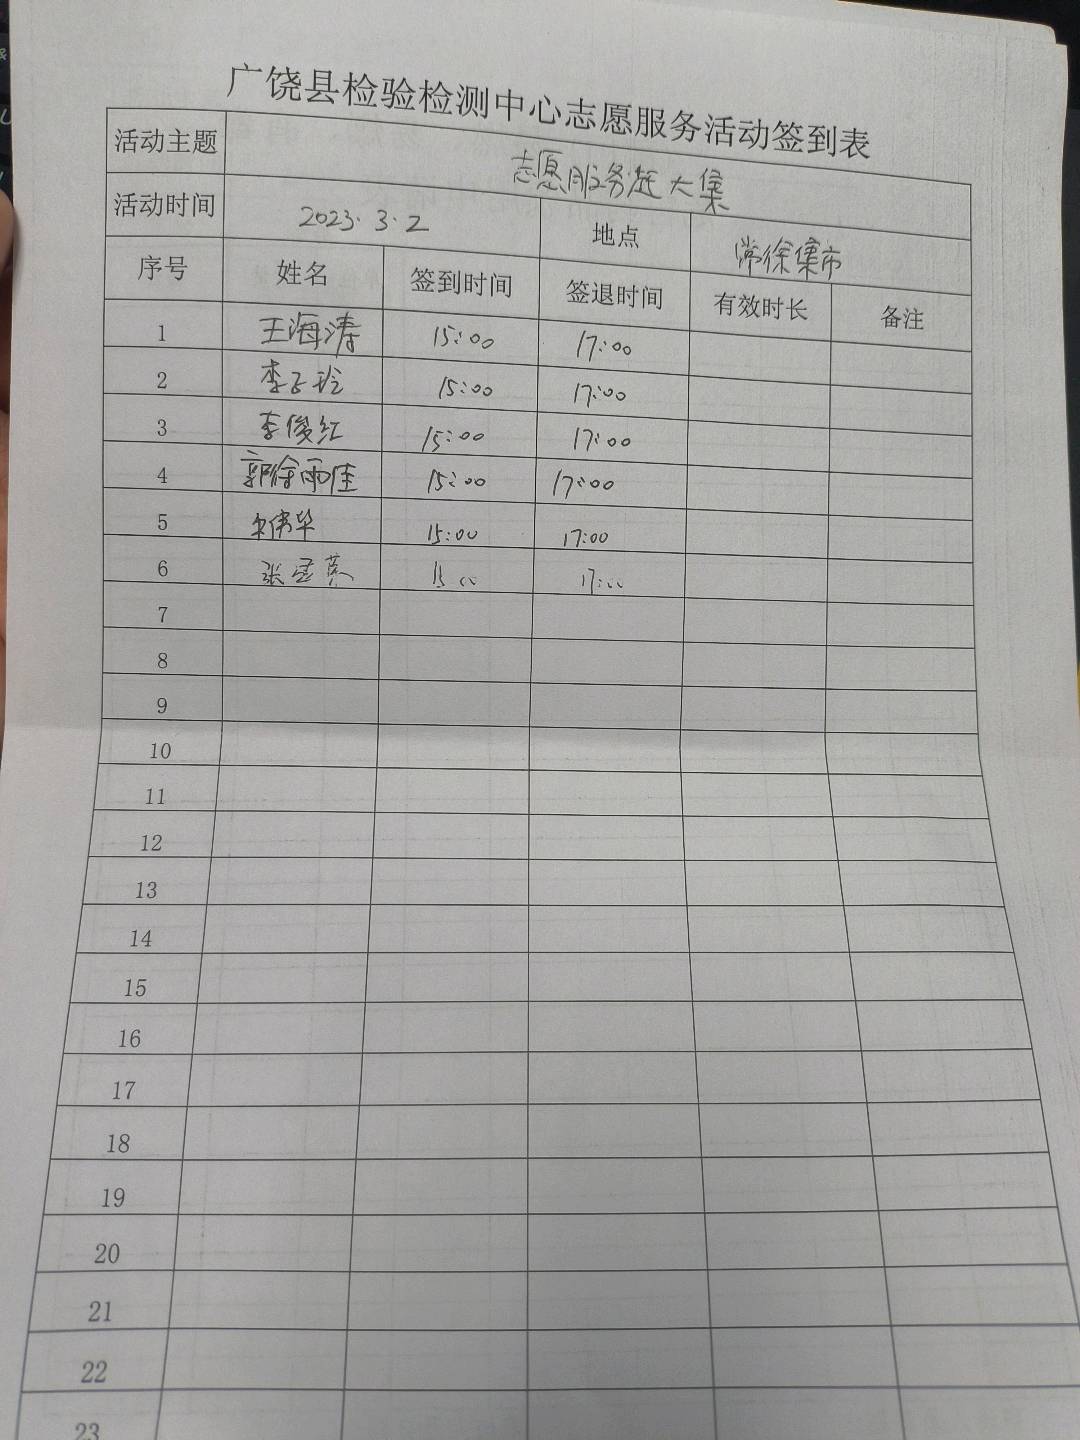 广饶县检验检测中心志愿服务活动签到表
活动主题 志愿服务赶大集
活动时间 2023.3.2 地点 常徐集市
序号 姓名 签到时间 签退时间 有效时长 备注
1 王海涛 15:00 17:00
2 李子玲 15:00 17:00
3 李俊红 15:00 17:00
4 郭徐雨佳 15:00 17:00
5 伟华 15:00 17:00
6 张 15:00 17:00
7
8
9
10
11
12
13
14
15
16
17
18
19
20
21
22
23